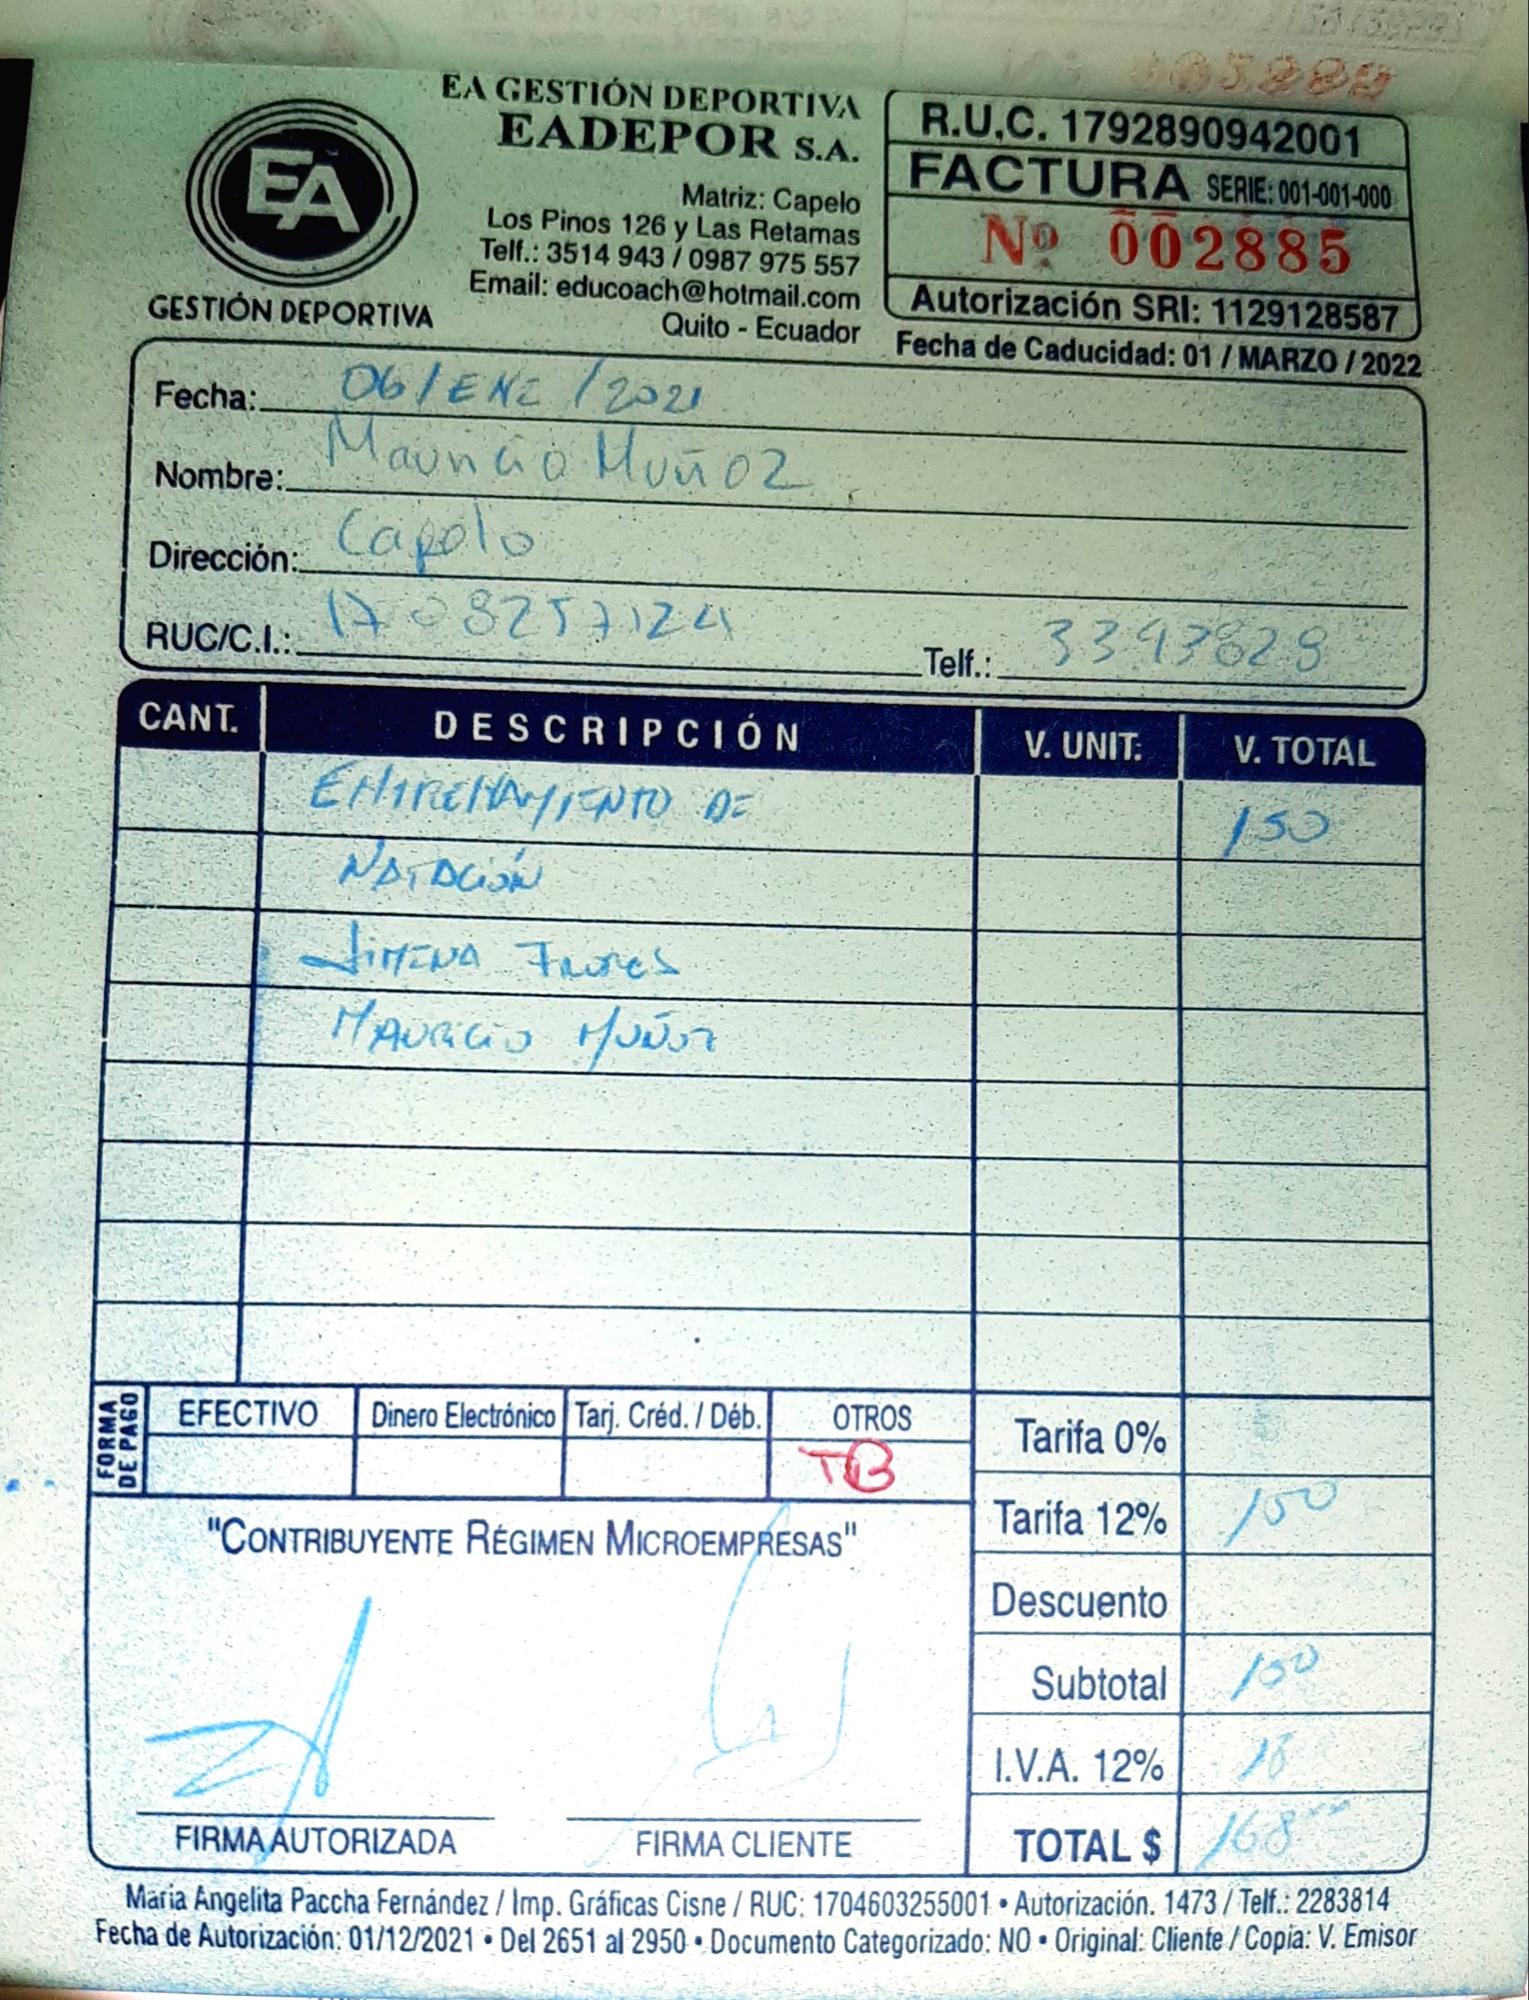 EA GESTIÓN DEPORTIVA
EADEPOR S.A.
EA
GESTIÓN DEPORTIVA
Matriz: Capelo
Los Pinos 126 y Las Retamas
Telf.: 3514 943 / 0987 975 557
Email: educoach@hotmail.com
Quito - Ecuador
R.U.C. 1792890942001
FACTURA SERIE: 001-001-000
Nº 002885
Autorización SRI: 1129128587
Fecha de Caducidad: 01 / MARZO / 2022
Fecha: 06/ENE/2021
Nombre: Mauricio Muñoz
Dirección: Capelo
RUC/C.I.: 1708257124 Telf.: 3393828
CANT. DESCRIPCIÓN V. UNIT. V. TOTAL
ENTRENAMIENTO DE 150
NATACIÓN
JIMENA FLORES
MAURICIO MUÑOZ
FORMA DE PAGO
EFECTIVO Dinero Electrónico Tarj. Créd. / Déb. OTROS
TB
Tarifa 0%
Tarifa 12% 150
Descuento
Subtotal 150
I.V.A. 12% 18
TOTAL $ 168
"CONTRIBUYENTE RÉGIMEN MICROEMPRESAS"
FIRMA AUTORIZADA FIRMA CLIENTE
Maria Angelita Paccha Fernández / Imp. Gráficas Cisne / RUC: 1704603255001 • Autorización. 1473 / Telf.: 2283814
Fecha de Autorización: 01/12/2021 • Del 2651 al 2950 • Documento Categorizado: NO • Original: Cliente / Copia: V. Emisor